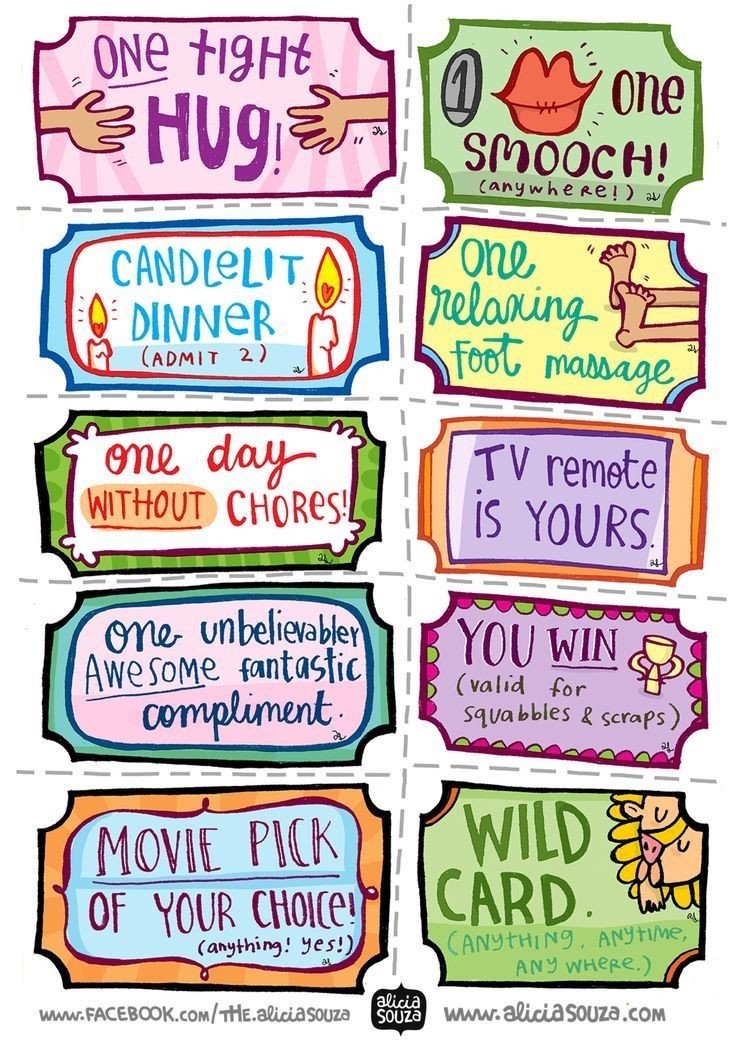 ONE tIGHt
HUG!
1 one
SMOOCH!
(anywhere!)
CANDLeLIT
DINNeR
(ADMIT 2)
one
relaxing
foot massage
one day
WITHOUT CHOReS!
TV remote
iS YOURS.
one unbelievabley
AWeSOMe fantastic
compliment.
YOU WIN
(valid for
squabbles & scraps)
MOVIE PICK
OF YOUR CHOICe!
(anything! yes!)
WILD
CARD.
(ANYtHING, ANYtIMe,
ANY WHeRe.)
www.FACEBOOK.com/tHe.aliciasouza
alicia
souza
www.aliciasouza.com